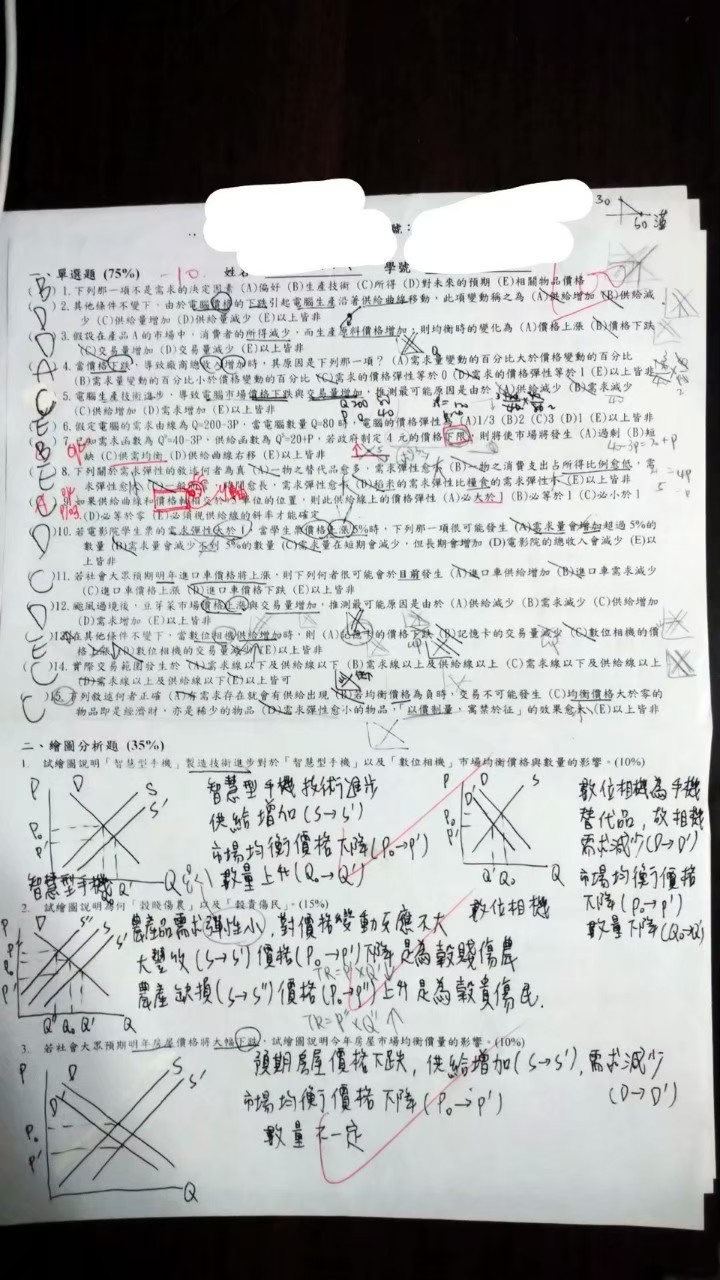 30
50 滿
號：
一、單選題 (75%) -10 姓名 學號
(B) 1.下列那一項不是需求的決定因素 (A)偏好 (B)生產技術 (C)所得 (D)對未來的預期 (E)相關物品價格
(D) 2.其他條件不變下，由於電腦價格的下跌引起電腦生產沿著供給曲線移動，此項變動稱之為 (A)供給增加 (B)供給減
少 (C)供給量增加 (D)供給量減少 (E)以上皆非
(D) 3.假設在產品 A 的市場中，消費者的所得減少，而生產原料價格增加，則均衡時的變化為 (A)價格上漲 (B)價格下跌
(C)交易量增加 (D)交易量減少 (E)以上皆非
(A) 4.當價格下跌，導致廠商總收入增加時，其原因是下列那一項？(A)需求量變動的百分比大於價格變動的百分比
(B)需求量變動的百分比小於價格變動的百分比 (C)需求的價格彈性等於 0 (D)需求的價格彈性等於 1 (E)以上皆非
(C) 5.電腦生產技術進步，導致電腦市場價格下跌與交易量增加，推測最可能原因是由於 (A)供給減少 (B)需求減少
(C)供給增加 (D)需求增加 (E)以上皆非
(E) 6.假定電腦的需求曲線為 Q=200-3P，當電腦數量 Q=80 時，電腦的價格彈性 (A)1/3 (B)2 (C)3 (D)1 (E)以上皆非
(B) 7.已知需求函數為 Qd=40-3P，供給函數為 Qs=20+P，若政府制定 4 元的價格下限，則將使市場將發生 (A)過剩 (B)短
缺 (C)供需均衡 (D)供給曲線右移 (E)以上皆非
(E) 8.下列關於需求彈性的敘述何者為真 (A)一物之替代品愈多，需求彈性愈小 (B)一物之消費支出占所得比例愈低，需
求彈性愈大 需求彈性愈大 (D)稻米的需求彈性比糧食的需求彈性小 (E)以上皆非
9.如果供給曲線和價格軸相交於 單位的位置，則此供給線上的價格彈性 (A)必大於 1 (B)必等於 1 (C)必小於 1
(D)必等於零 (E)必須視供給線的斜率才能確定
(D)10.若電影院學生票的需求彈性大於 1，當學生票價格上漲 5%時，下列那一項很可能發生 (A)需求量會增加超過 5%的
數量 (B)需求量會減少 5%的數量 (C)需求量在短期會減少，但長期會增加 (D)電影院的總收入會減少 (E)以
上皆非
(C)11.若社會大眾預期明年進口車價格將上漲，則下列何者很可能會於目前發生 (A)進口車供給增加 (B)進口車需求減少
(C)進口車價格上漲 (D)進口車價格下跌 (E)以上皆非
(D)12.颱風過境後，豆芽菜市場價格上漲與交易量增加，推測最可能原因是由於 (A)供給減少 (B)需求減少 (C)供給增加
(D)需求增加 (E)以上皆非
(E)13.在其他條件不變下，當數位相機供給增加時，則 (A)記憶卡的價格下跌 (B)記憶卡的交易量減少 (C)數位相機的價
格上漲 (D)數位相機的交易量減少 (E)以上皆非
(C)14.實際交易範圍發生於 (A)需求線以下及供給線以下 (B)需求線以上及供給線以上 (C)需求線以下及供給線以上
(D)需求線以上及供給線以下 (E)以上皆可
(C)15.下列敘述何者正確 (A)有需求存在就會有供給出現 (B)若均衡價格為負時，交易不可能發生 (C)均衡價格大於零的
物品即是經濟財，亦是稀少的物品 (D)需求彈性愈小的物品，「以價制量，寓禁於征」的效果愈大 (E)以上皆非
二、繪圖分析題 (35%)
1. 試繪圖說明「智慧型手機」製造技術進步對於「智慧型手機」以及「數位相機」市場均衡價格與數量的影響。(10%)
P D S S' P0 P' Q0 Q' Q
智慧型手機
智慧型手機技術進步
供給增加(S→S')
市場均衡價格下降(P0→P')
數量上升(Q0→Q')
P D' D S P0 P' Q' Q0 Q
數位相機
數位相機為手機
替代品，故相機
需求減少(D→D')
市場均衡價格
下降(P0→P')
數量下降(Q0→Q')
2. 試繪圖說明為何「穀賤傷農」以及「穀貴傷民」。(15%)
P D S" S S' P" P0 P' Q" Q0 Q' Q
農產品需求彈性小，對價格變動反應不大
大豐收(S→S')價格(P0→P')下降是為穀賤傷農
TR=P'×Q'↓
農產缺損(S→S")價格(P0→P")上升是為穀貴傷民.
TR=P"×Q"↑
3. 若社會大眾預期明年房屋價格將大幅下跌，試繪圖說明今年房屋市場均衡價量的影響。(10%)
P D D' S S' P0 P' Q
預期房屋價格下跌，供給增加(S→S')，需求減少
(D→D')
市場均衡價格下降(P0→P')
數量不一定